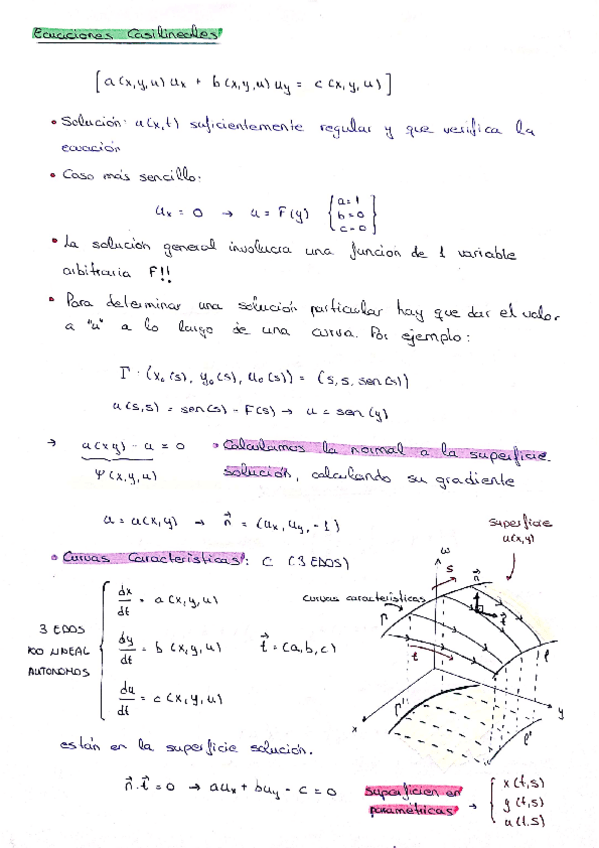 Ecuaciones Casilineales
[a(x,y,u) ux + b(x,y,u) uy = c(x,y,u)]
• Solución: u(x,t) suficientemente regular y que verifica la
ecuación
• Caso más sencillo:
ux = 0 → u = F(y) { a=1
b=0
c=0 }
• La solución general involucra una función de 1 variable
arbitraria F!!
• Para determinar una solución particular hay que dar el valor
a "u" a lo largo de una curva. Por ejemplo:
Γ: (x₀(s), y₀(s), u₀(s)) = (s, s, sen(s))
u(s,s) = sen(s) = F(s) → u = sen(y)
→ u(x,y) - u = 0 • Calculamos la normal a la superficie
Ψ(x,y,u) solución, calculando su gradiente
u = u(x,y) → n⃗ = (ux, uy, -1)
superficie
u(x,y)
• Curvas Características: C (3 EDOS)
dx/dt = a(x,y,u)
curvas características
3 EDOS
NO LINEAL
AUTONOMOS
dy/dt = b(x,y,u) t⃗ = (a,b,c)
du/dt = c(x,y,u)
ω
s
n⃗
t⃗
Γ
t
l
Γ'
l'
x
y
están en la superficie solución.
n⃗·t⃗ = 0 → aux + buy - c = 0
superficies en
paramétricas → { x(t,s)
y(t,s)
u(t,s)